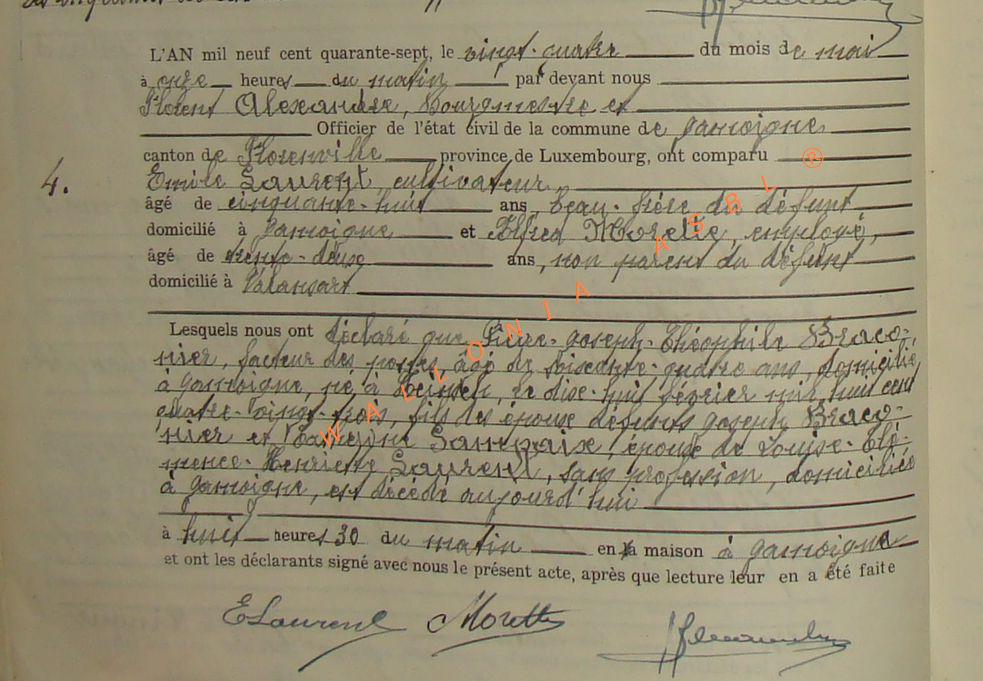 L'AN mil neuf cent quarante-sept, le vingt-quatre du mois de mai
à onze heures du matin par devant nous
Florent Alexandre, Bourgmestre et
Officier de l'état civil de la commune de Jamoigne
canton de Florenville province de Luxembourg, ont comparu
4. Emile Laurent, cultivateur,
âgé de cinquante-huit ans, beau-frère du défunt
domicilié à Jamoigne et Alfred Morette, employé,
âgé de trente-deux ans, non parent du défunt
domicilié à Valansart
WALLONIA ASBL ®
Lesquels nous ont déclaré que Pierre-Joseph-Théophile Braco-
nier, facteur des postes, âgé de soixante-quatre ans, domicilié
à Jamoigne, né à le dix-huit février mil huit cent
quatre-vingt-trois, fils des époux défunts Joseph Braco-
nier et Lampaix, époux de Louise-Clé-
mence-Henriette Laurent, sans profession, domiciliée
à Jamoigne, est décédé aujourd'hui
à huit heures 30 du matin en sa maison à Jamoigne
et ont les déclarants signé avec nous le présent acte, après que lecture leur en a été faite
ELaurent Morette